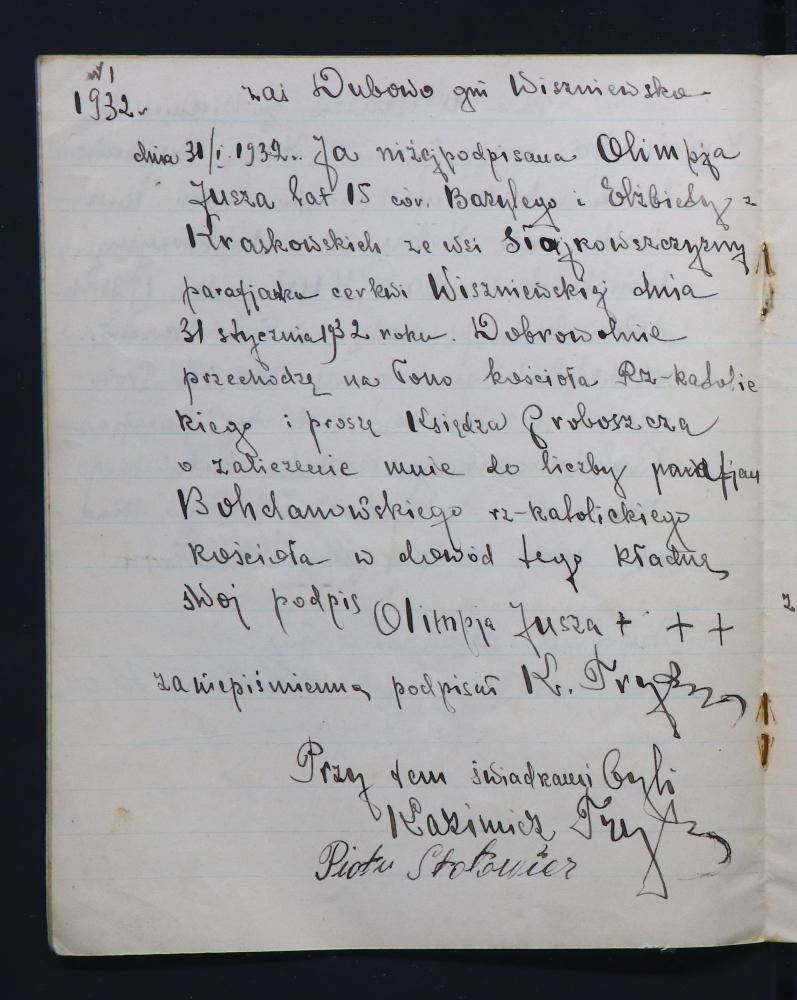 № 1
1932. zaś Dubowo gm Wiszniewska
dnia 31/I. 1932. Ja niżejpodpisana Olimpja
Jusza lat 15 cór. Bazylego i Elżbiety z
Kraskowskich ze wsi Siajkowszczyzny
parafjanka cerkwi Wiszniewskiej dnia
31 stycznia 1932 roku. Dobrowolnie
przechodzę na łono kościoła Rz-katolic
kiego i proszę Księdza Proboszcza
o zaliczenie mnie do liczby parafjan
Bohdanowskiego rz-katolickiego
kościoła w dowód tego kładnę
swój podpis Olimpja Jusza + + +
za niepiśmienną podpisał K.
Przy tem świadkami byli
Kazimierz
Piotr